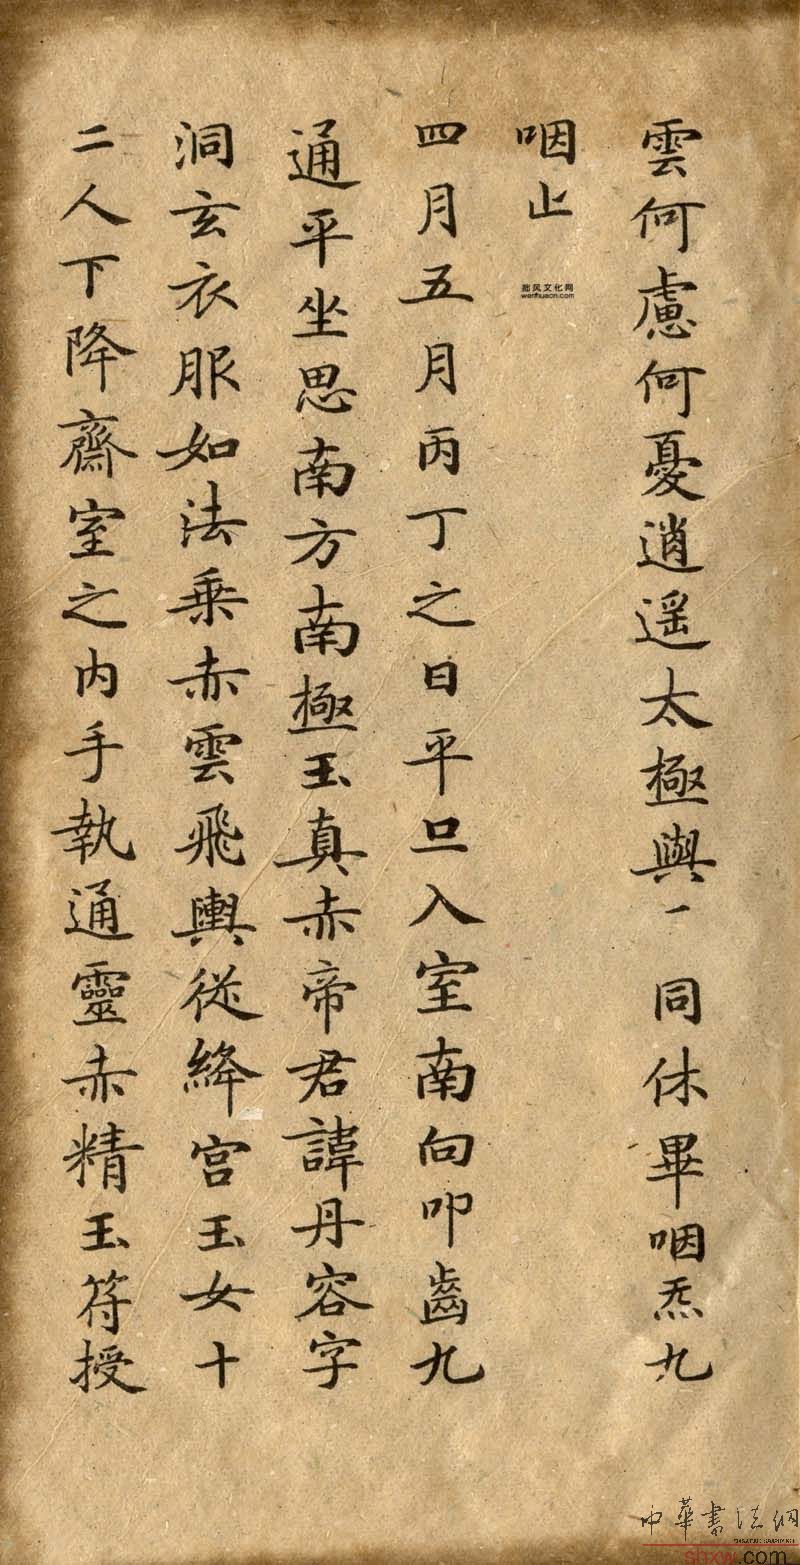 雲何慮何憂逍遥太極與一同休畢咽炁九
咽止
四月五月丙丁之日平旦入室南向叩齒九
通平坐思南方南極玉真赤帝君諱丹容字
洞玄衣服如法乗赤雲飛輿從絳宮玉女十
二人下降齋室之内手執通靈赤精玉符授
拙风文化网
wenhuacn.com
中華書法網
shxw.com